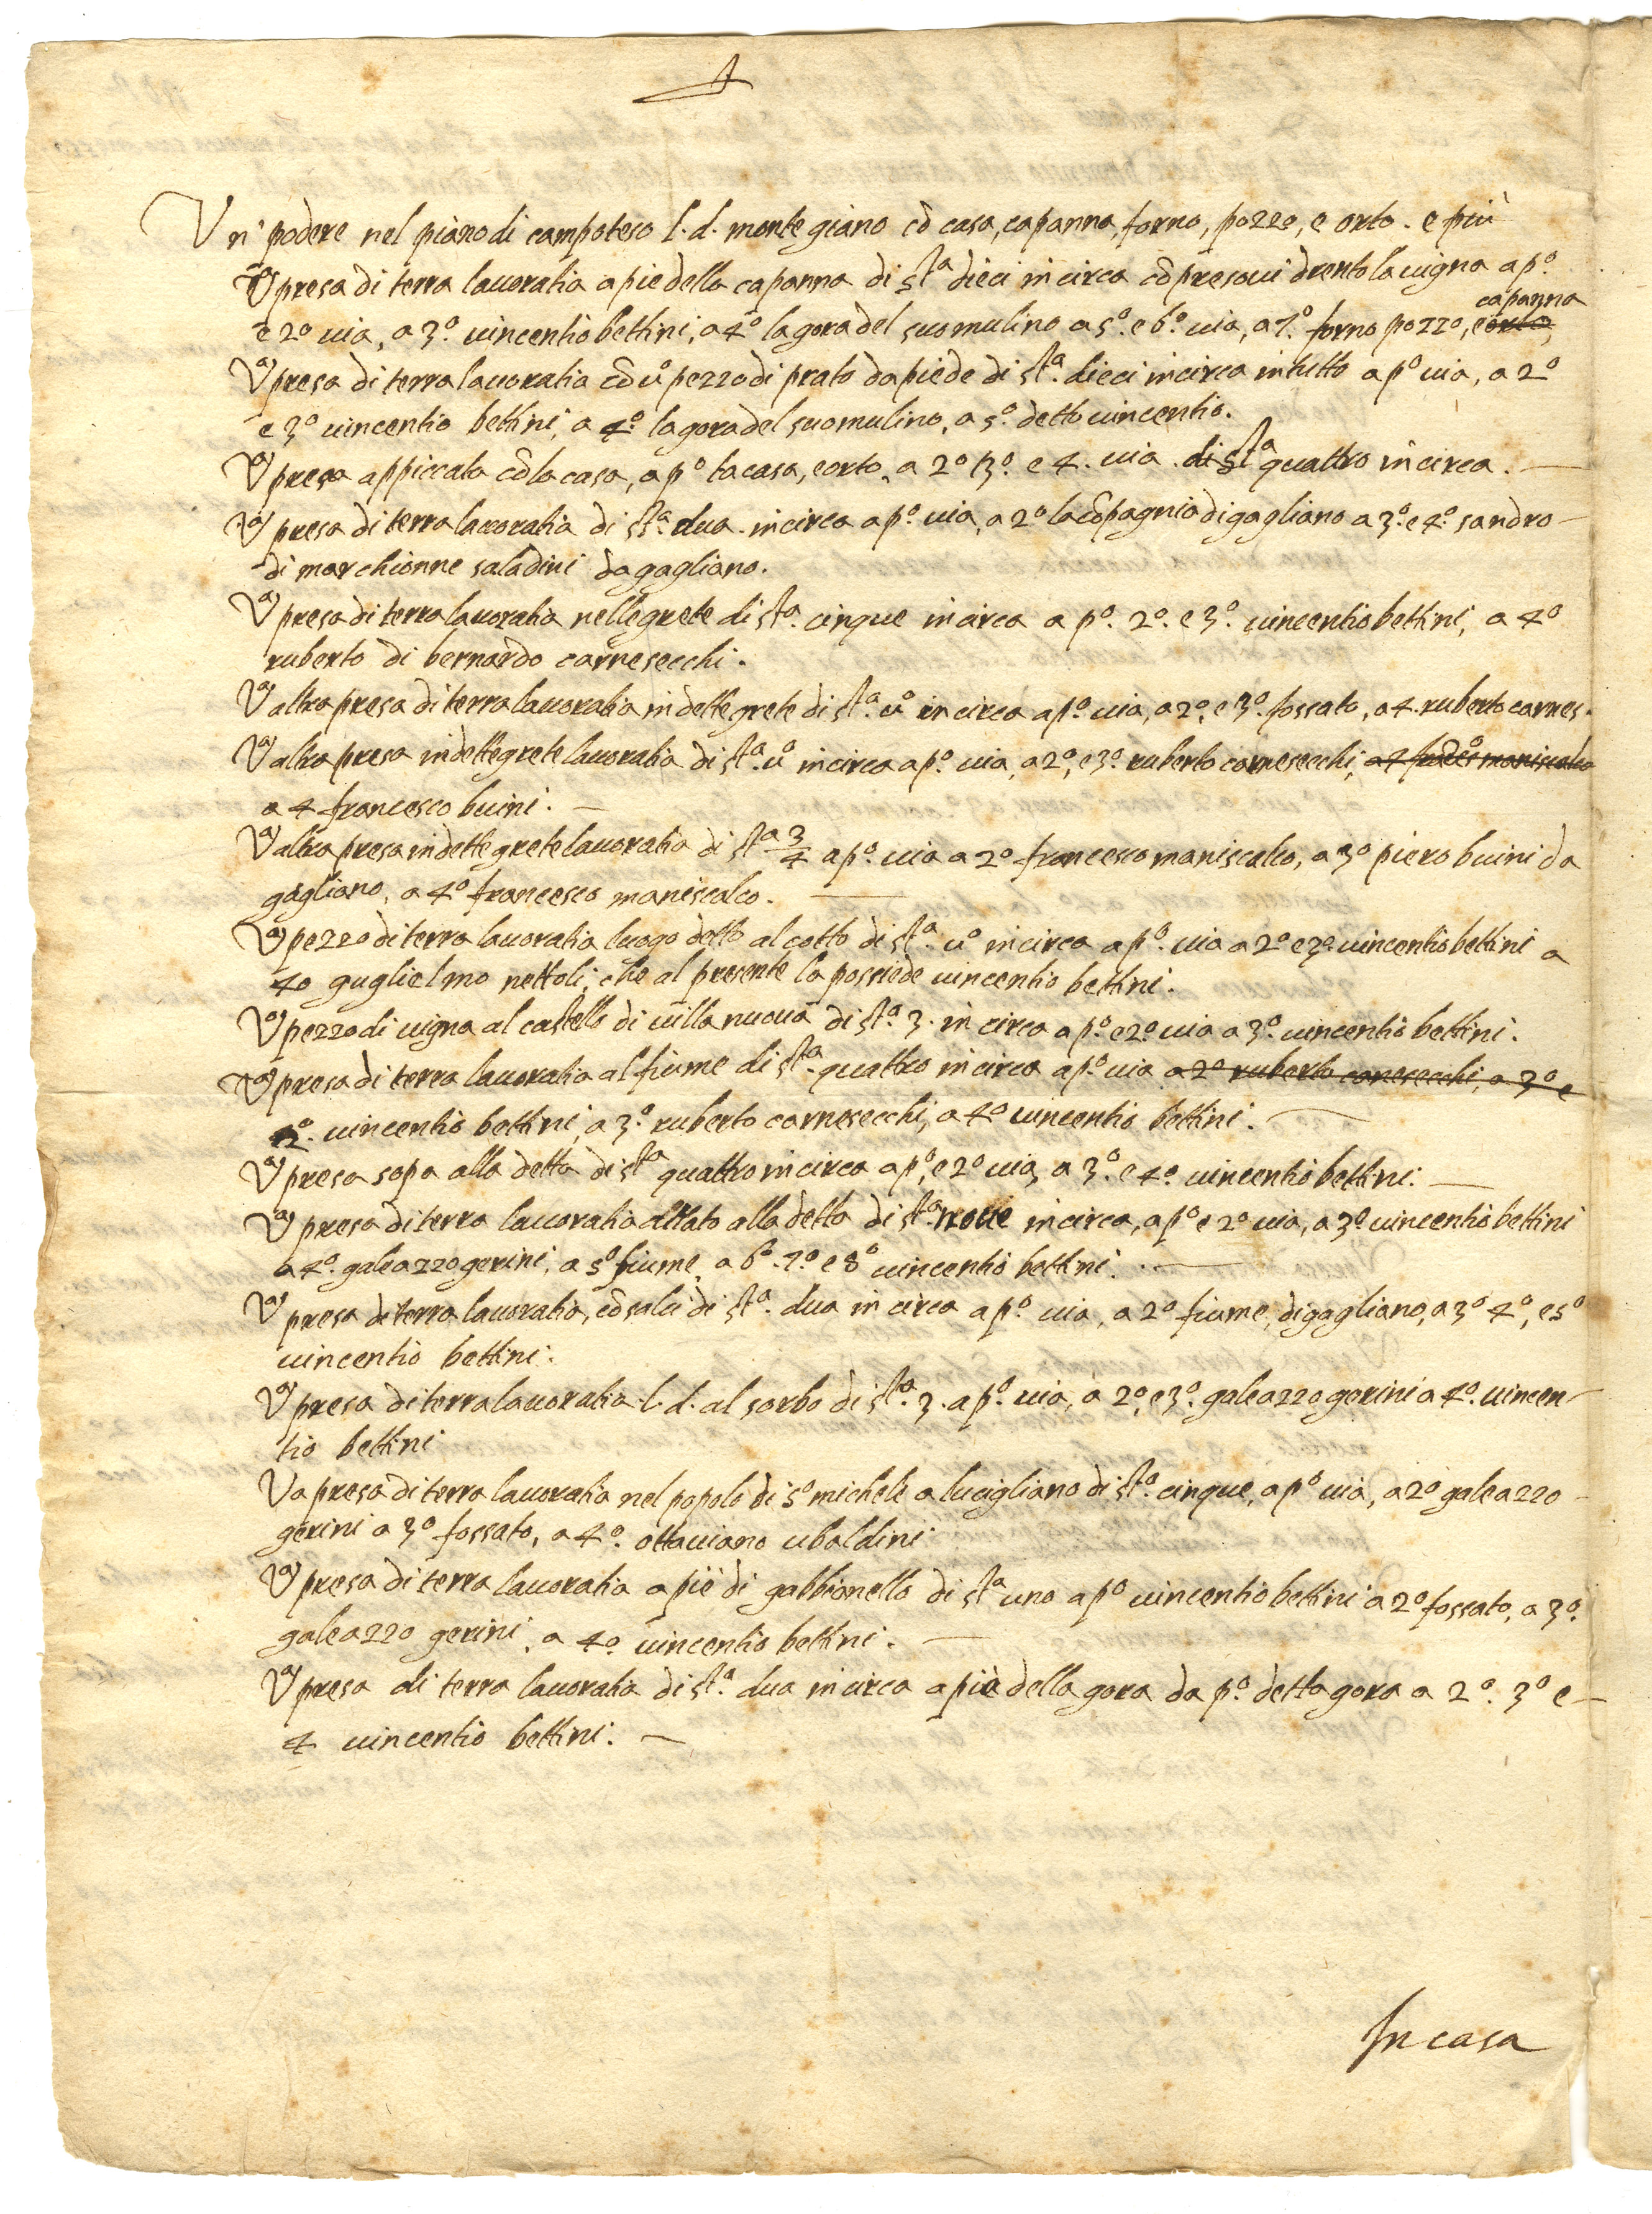 Un' podere nel piano di campoteso l. d. monte giano cō casa, capanna, forno, pozzo, e orto. e più
Vᵃ presa di terra lauoratia a pie della capanna di stᵃ dieci in circa cō presoui drento la uigna a pº.
e 2º uia, a 3º. uincentio bettini, a 4º la gora del suo mulino a 5º. e 6º. uia, a 7º. forno pozzo, e orto, capanna
Vᵃ presa di terra lauoratia cō uº pezzo di prato da piede di stᵃ. dieci incirca in tutto a pº uia, a 2º
e 3º uincentio bettini, a 4º la gora del suo mulino, a 5º. detto uincentio.
Vᵃ presa appiccata cō la casa, a pº la casa, e orto, a 2º 3º. e 4. uia. di stᵃ quattro in circa.
Vᵃ presa di terra lauoratia di stᵃ. dua. in circa a pº. uia, a 2º la cōpagnia di gagliano a 3º. e 4º. sandro
di marchionne saladini da gagliano.
Vᵃ presa di terra lauoratia nelle grete di stᵃ. cinque in circa a pº. 2º. e 3º. uincentio bettini, a 4º
ruberto di bernardo carnesecchi.
Vᵃ altra presa di terra lauoratia in dette grete di stᵃ. uº in circa a pº. uia, a 2º, e 3º. fossato, a 4. ruberto carnes.
Vᵃ altra presa in dette grete lauoratia di stᵃ. uº in circa a pº. uia, a 2º, e 3º. ruberto carnesecchi, a 4 maniscalco
a 4 francesco buini.
Vᵃ altra presa in dette grete lauoratia di stᵃ 3/4 a pº. uia a 2º francesco maniscalco, a 3º piero buini da
gagliano, a 4º francesco maniscalco.
Vº pezzo di terra lauoratia luogo detto al cotto di stᵃ. uº in circa a pº. uia a 2º e 3º uincentio bettini a
4º guglielmo nettoli, che al presente la possiede uincentio bettini.
Vº pezzo di uigna al castello di uilla nuoua di stᵃ. 3. in circa a pº. e 2º. uia a 3º. uincentio bettini.
Vᵃ presa di terra lauoratia al fiume di stᵃ. quattro in circa a pº. uia a 2º ruberto carnesecchi, a 3º e
2º. uincentio bettini, a 3º. ruberto carnesecchi, a 4º uincentio bettini.
Vᵃ presa sopa alla detta di stᵃ quattro in circa a pº, e 2º uia, a 3º. e 4º. uincentio bettini.
Vᵃ presa di terra lauoratia allato alla detta di stᵃ. noue in circa, a pº e 2º uia, a 3º. uincentio bettini
a 4º. galeazzo gerini, a 5º fiume, a 6º. 7º. e 8º uincentio bettini.
Vᵃ presa di terra lauoratia, cō salci di stᵃ. dua in circa a pº. uia, a 2º fiume, di gagliano, a 3º 4º, e 5º
uincentio bettini.
Vᵃ presa di terra lauoratia. l. d. al sorbo di stᵃ. 3. a pº. uia, a 2º, e 3º. galeazzo gerini a 4º. uincen-
tio bettini
Va presa di terra lauoratia nel popolo di sº michele a lucigliano di stᵃ. cinque, a pº uia, a 2º galeazzo
gerini a 3º fossato, a 4º. ottauiano ubaldini
Vᵃ presa di terra lauoratia a pie di gabbianello di stᵃ uno a pº uincentio bettini a 2º fossato, a 3º.
galeazzo gerini, a 4º uincentio bettini.
Vᵃ presa di terra lauoratia di stᵃ. dua in circa a piè della gora da pº. detta gora a 2º. 3º e
4 uincentio bettini.
In casa